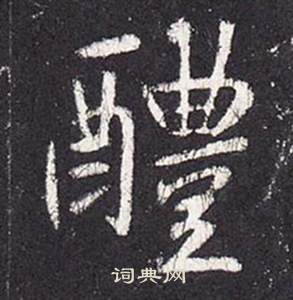 醴
词典网